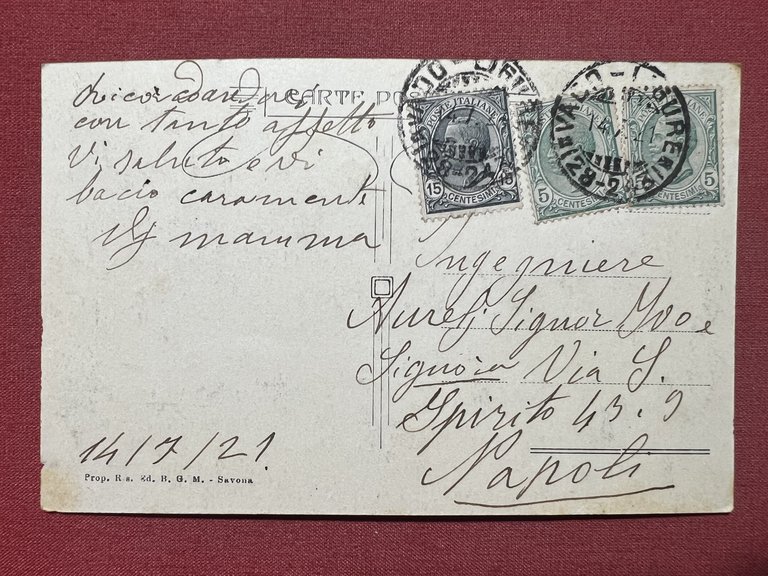 Ricordandovi
con tanto affetto
Vi saluto e vi
bacio caramente
mamma
14/7/21
Prop. Ris. Ed. B. G. M. - Savona
CARTE POS
POSTE ITALIANE
15 15
CENTESIMI
5
CENTESIMI
5
CENTESIMI
Ingegniere
Aurelj Signor Ivo e
Signora Via S.
Spirito 43.9
Napoli